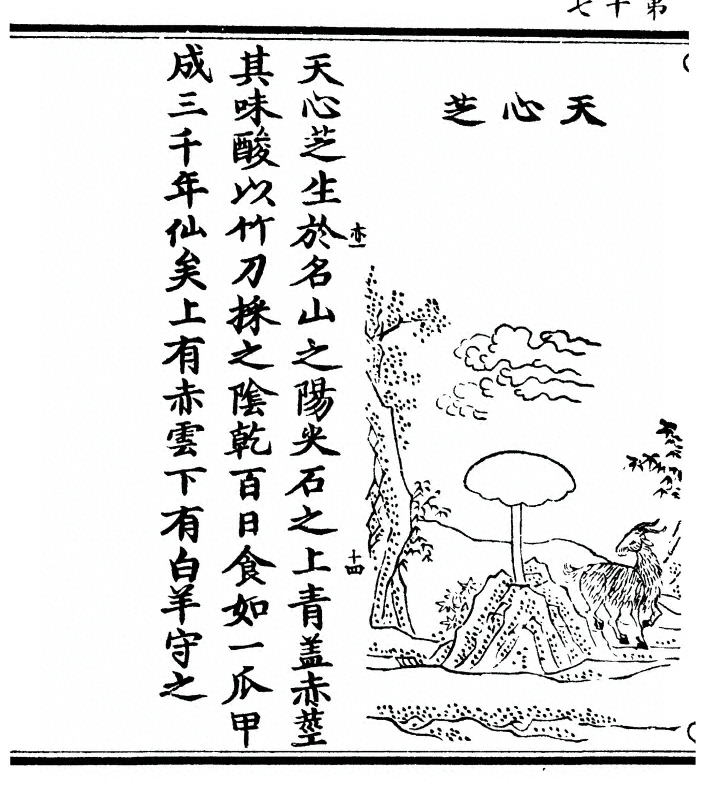 第十七
天心芝
亦一
十四
天心芝生於名山之陽尖石之上青盖赤莖
其味酸以竹刀採之陰乾百日食如一爪甲
成三千年仙矣上有赤雲下有白羊守之